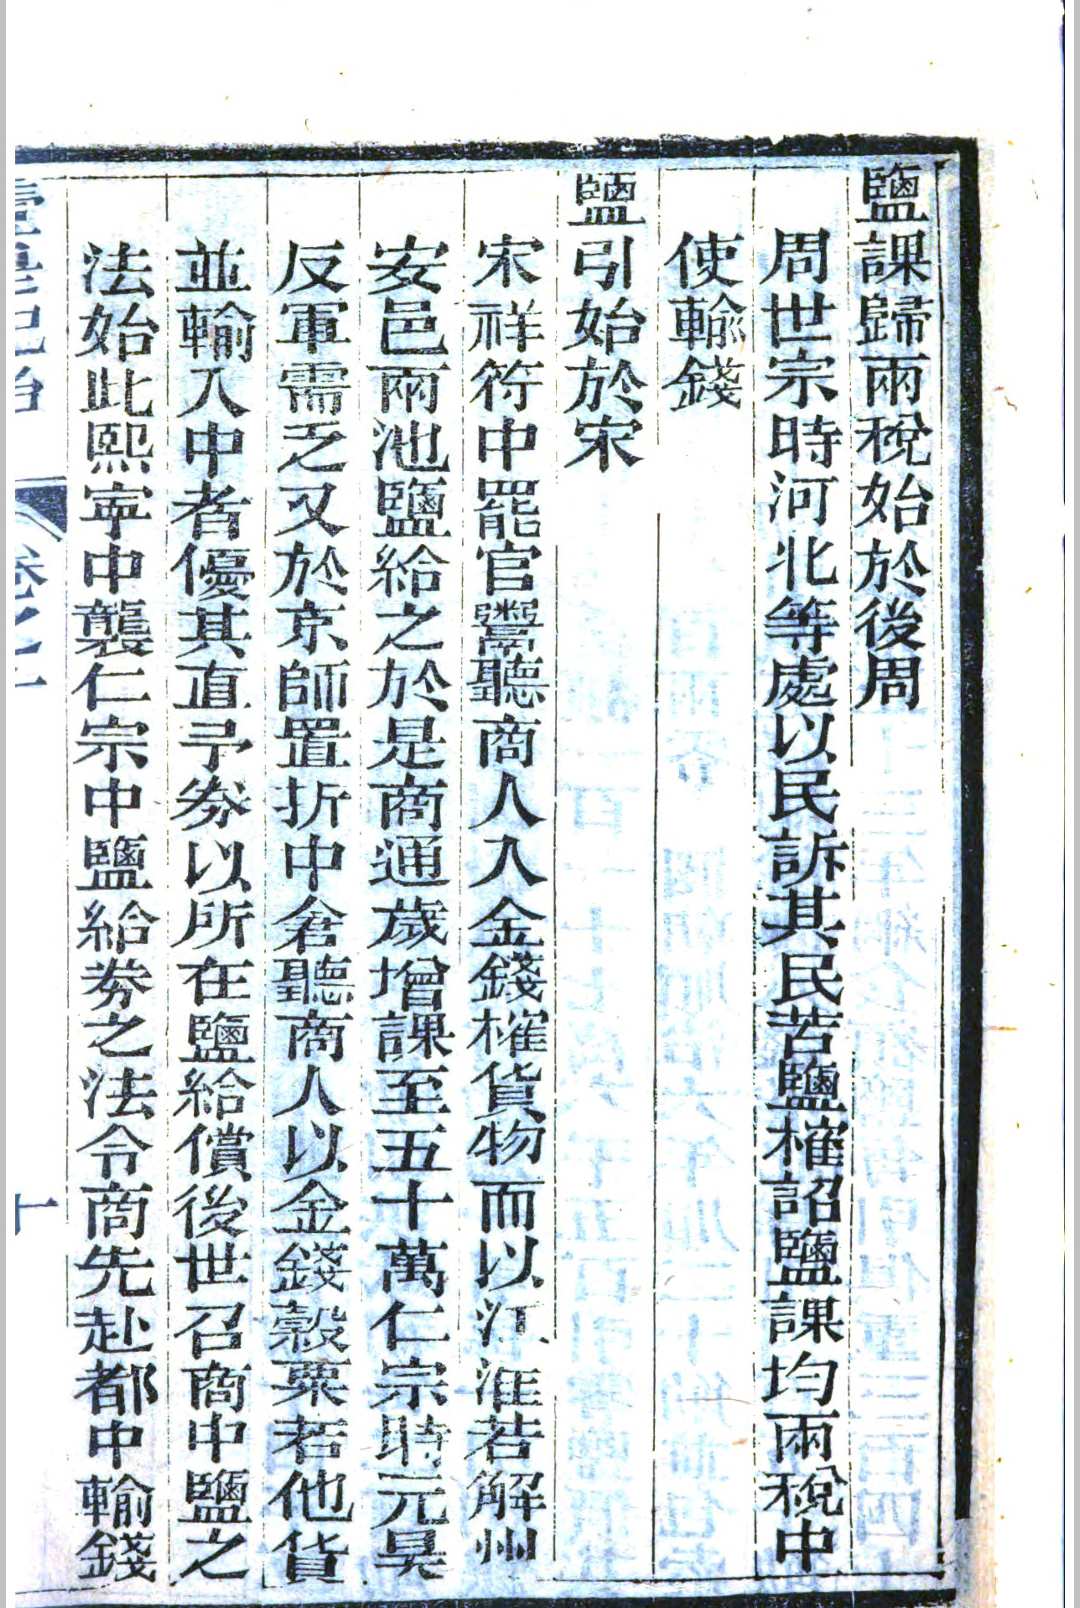 鹽課歸兩稅始於後周
周世宗時河北等處以民訴其民苦鹽榷詔鹽課均兩稅中
使輸錢
鹽引始於宋
宋祥符中罷官鬻聽商人入金錢榷貨物而以江淮若解州
安邑兩池鹽給之於是商通歲增課至五十萬仁宗時元昊
反軍需乏又於京師置折中倉聽商人以金錢穀粟若他貨
並輸入中者優其直予券以所在鹽給償後世召商中鹽之
法始此熙寧中襲仁宗中鹽給券之法令商先赴都中輸錢
卷之二
十